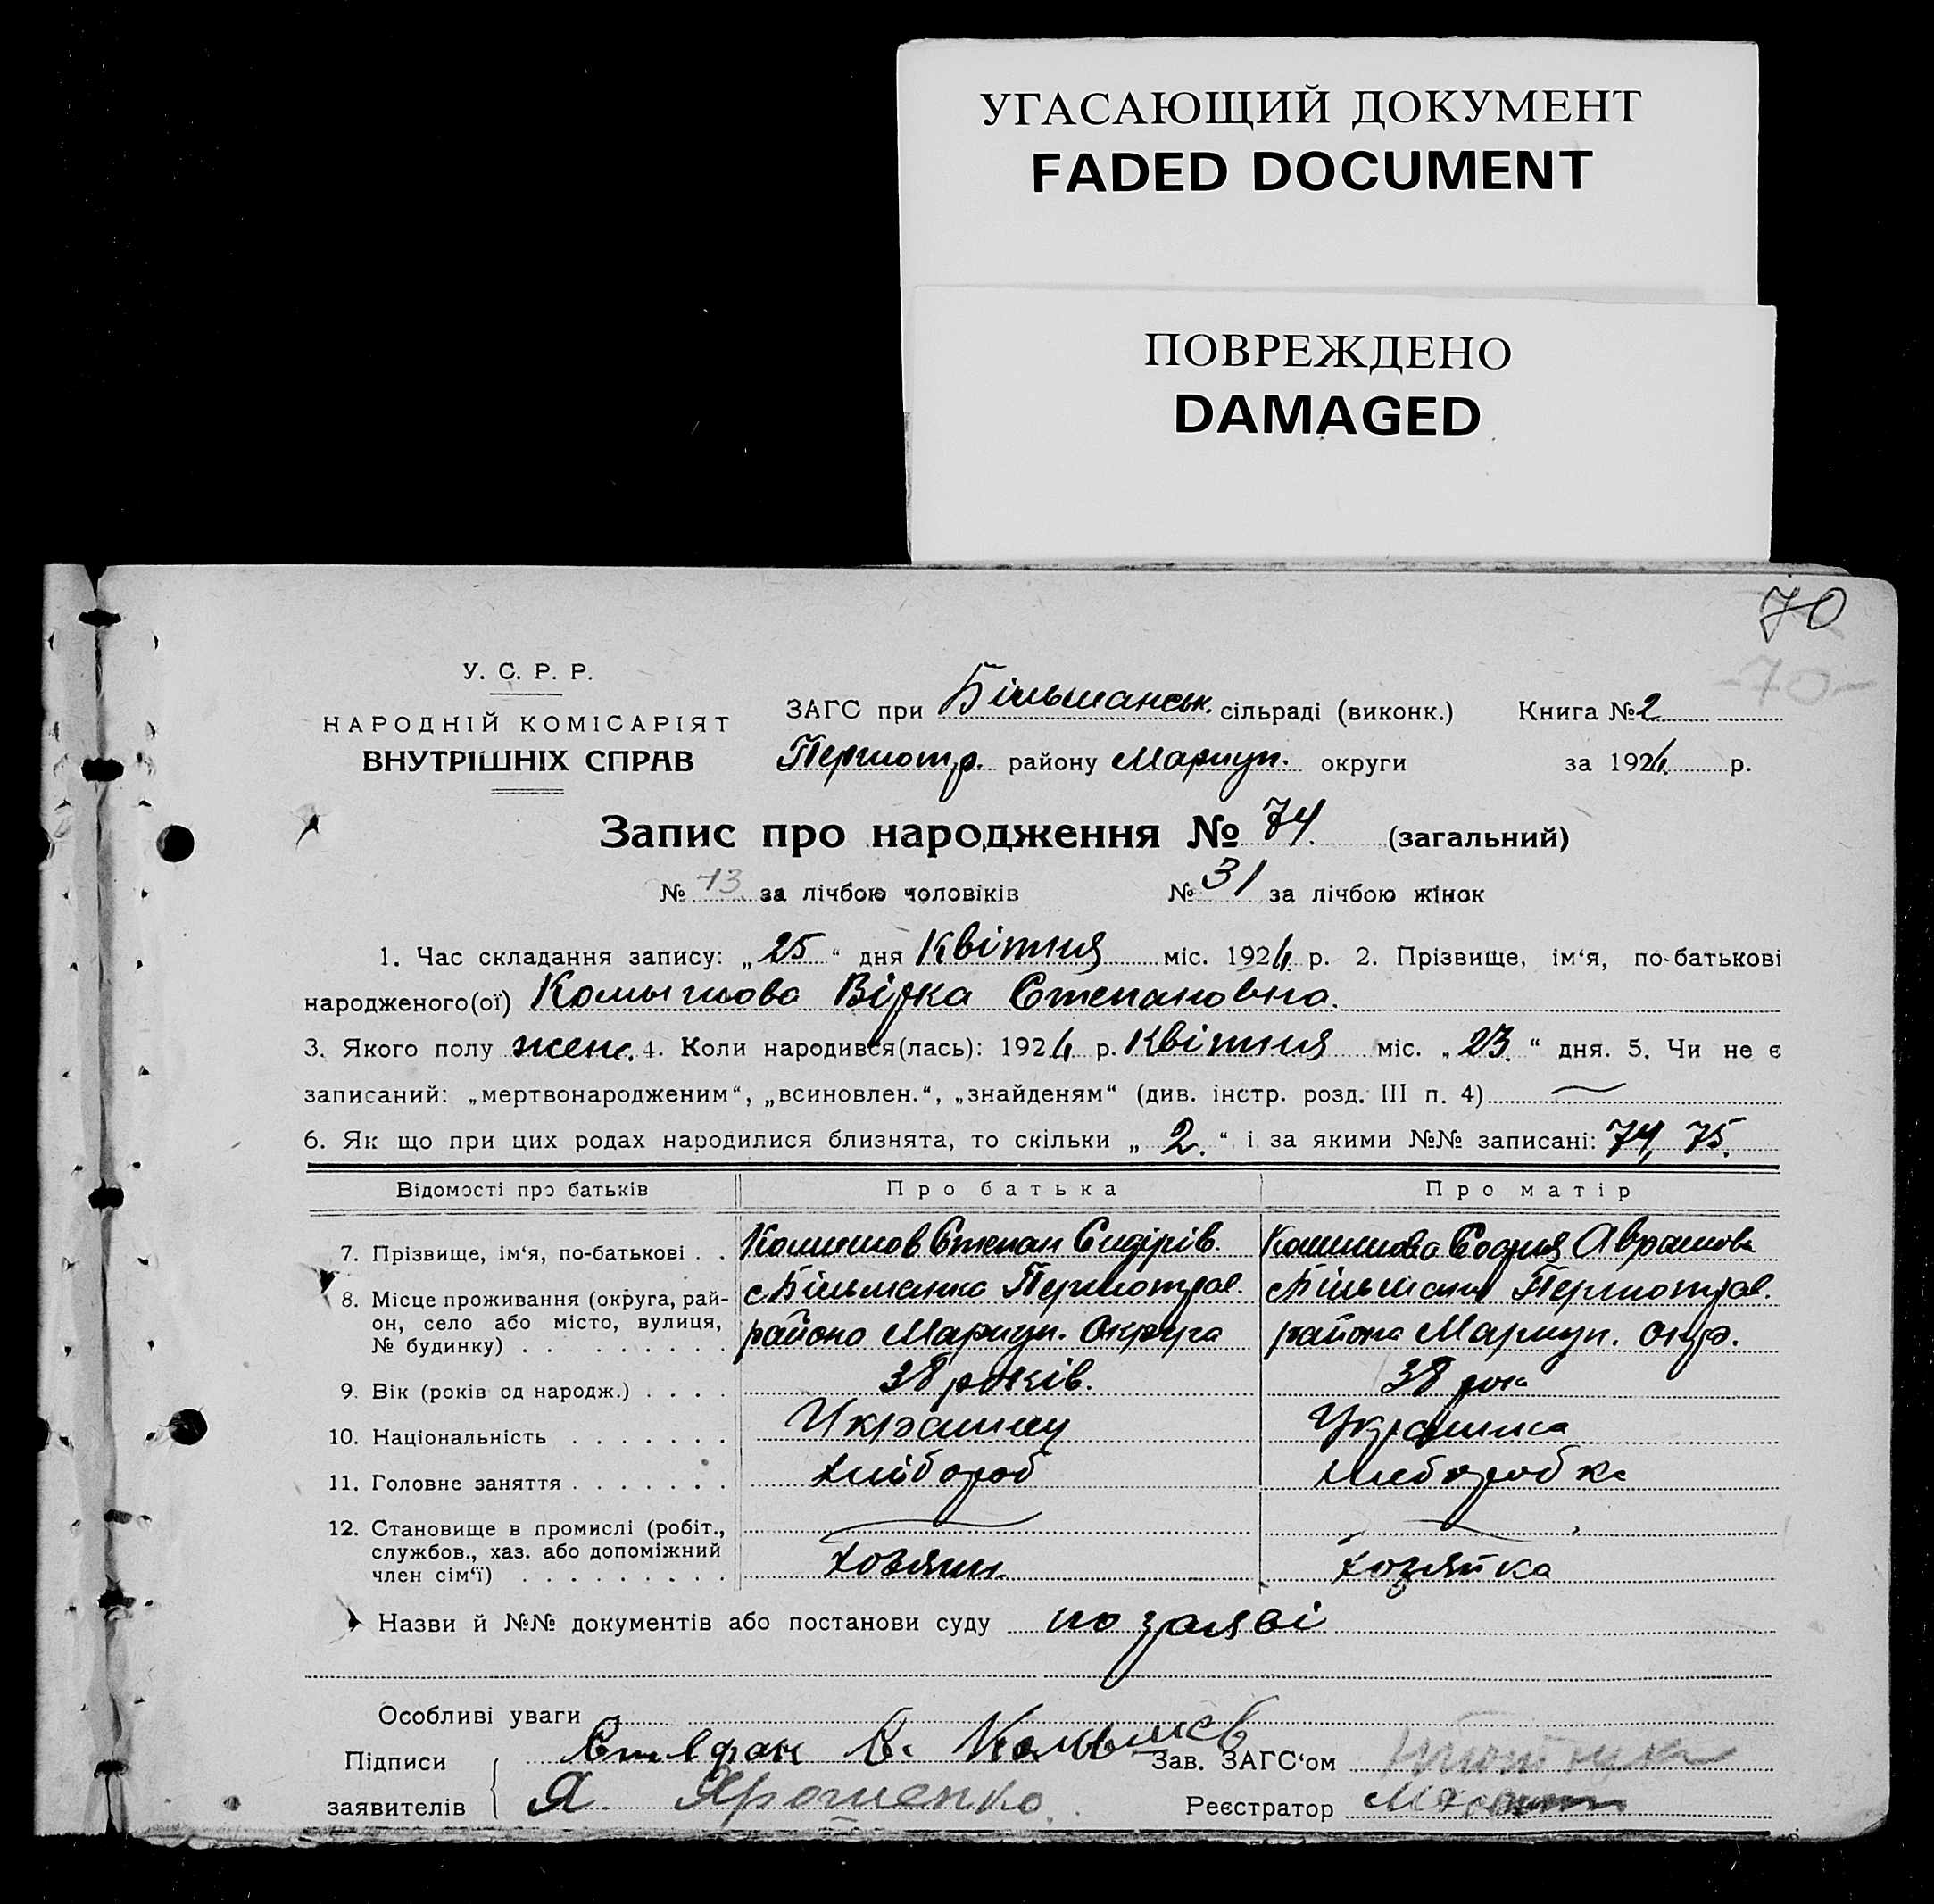 УГАСАЮЩИЙ ДОКУМЕНТ
FADED DOCUMENT
ПОВРЕЖДЕНО
DAMAGED
70
-70-
У. С. Р. Р.
НАРОДНІЙ КОМІСАРІЯТ
ВНУТРІШНІХ СПРАВ
ЗАГС при Більманськ. сільраді (виконк.) Книга № 2
Першотр. району Мариуп. округи за 192 р.
Запис про народження № 74. (загальний)
№ за лічбою чоловіків № 31 за лічбою жінок
1. Час складання запису: „ 25 “ дня Квітня міс. 192 р. 2. Прізвище, ім‘я, по-батькові
народженого(ої) Вірка Степановна.
3. Якого полу жен. 4. Коли народився(лась): 192 р. Квітня міс. „ 23. “ дня. 5. Чи не є
записаний: „мертвонародженим“, „всиновлен.“, „знайденям“ (див. інстр. розд. III п. 4)
6. Як що при цих родах народилися близнята, то скільки „ 2. “ і за якими №№ записані: 74, 75.
Відомості про батьків Про батька Про матір
7. Прізвище, ім‘я, по-батькові . . Степан Сидірів.
8. Місце проживання (округа, рай-
он, село або місто, вулиця,
№ будинку) с Більманка Першотрав.
района Мариуп. Округа
Першотрав.
района Мариуп. окр.
9. Вік (років од народж.) . . . . 38 років. 38 рок
10. Національність . . . . . . . Украинец Украинка
11. Головне заняття . . . . . . . хлибороб хлеборобка
12. Становище в промислі (робіт.,
службов., хаз. або допоміжний
член сім‘ї) . . . . . . . . . Хозяин Хозяйка
Назви й №№ документів або постанови суду по заяві
Особливі уваги
Підписи С. Зав. ЗАГС‘ом
заявителів Я. Ярошенко. Реєстратор